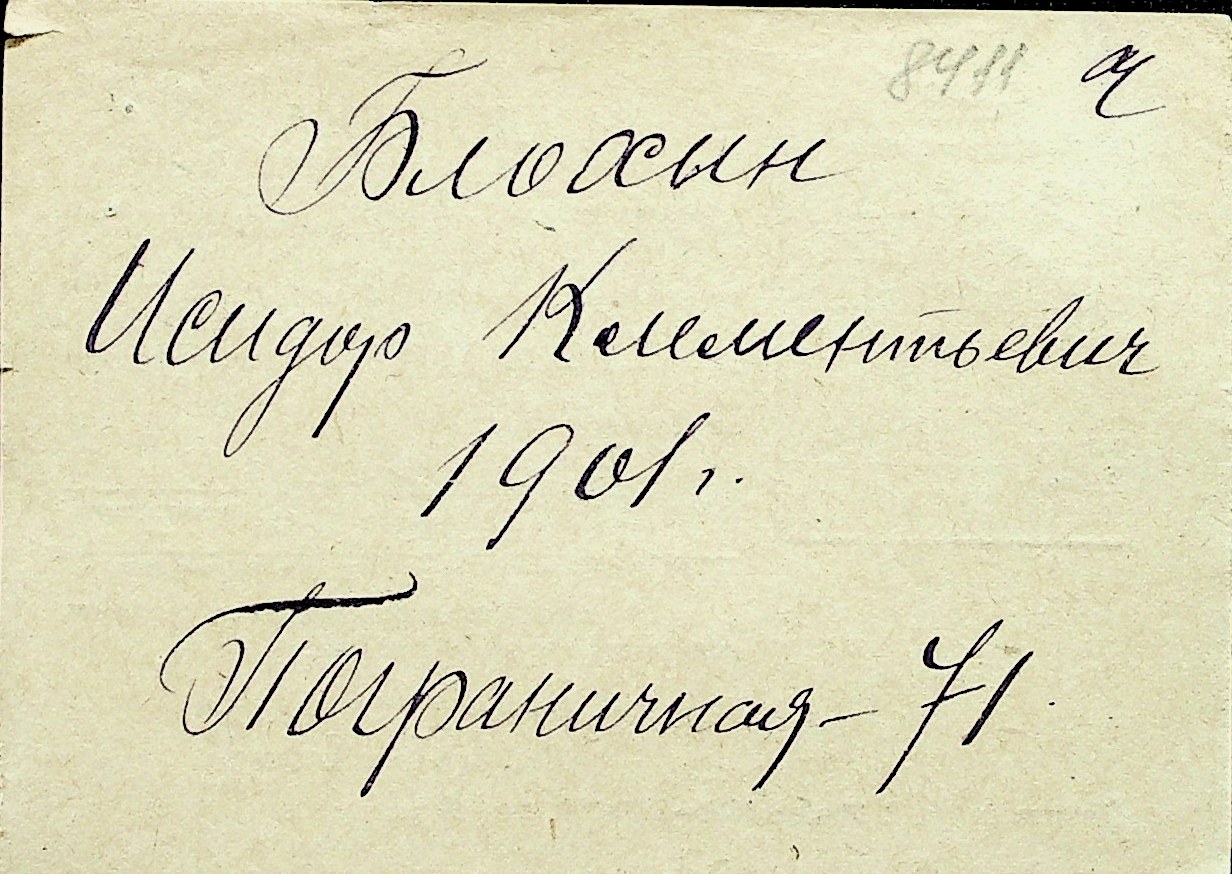 8411 ч
Блохын
Исидор Климентьевич
1901 г.
Пограничная – 71